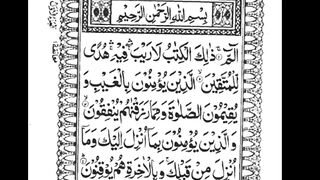 بِسْمِ اللّٰهِ الرَّحْمٰنِ الرَّحِيْمِ
الٓمّٓ ۚ ذٰلِكَ الْكِتٰبُ لَا رَيْبَ ۛ فِيْهِ ۛ هُدًى
لِّلْمُتَّقِيْنَ ۙ الَّذِيْنَ يُؤْمِنُوْنَ بِالْغَيْبِ وَ
يُقِيْمُوْنَ الصَّلٰوةَ وَمِمَّا رَزَقْنٰهُمْ يُنْفِقُوْنَ ۙ
وَالَّذِيْنَ يُؤْمِنُوْنَ بِمَآ اُنْزِلَ اِلَيْكَ وَمَآ
اُنْزِلَ مِنْ قَبْلِكَ ۚ وَبِالْاٰخِرَةِ هُمْ يُوْقِنُوْنَ ۗ